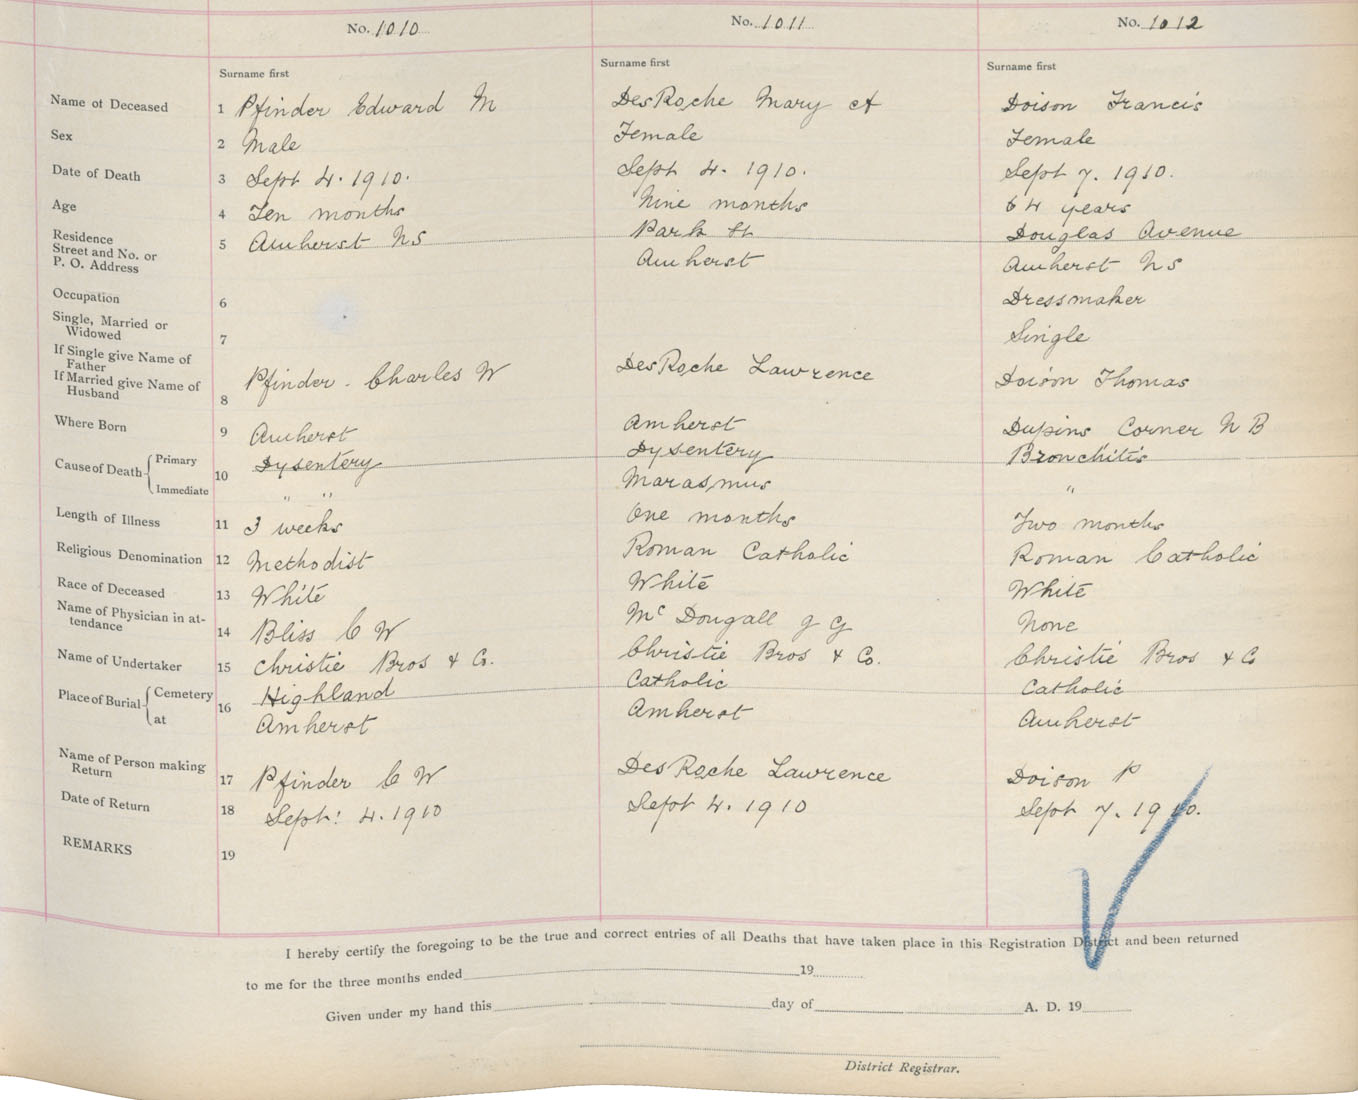 No. 1010 No. 1011 No. 1012
Surname first Surname first Surname first
Name of Deceased 1 Pfinder Edward M DesRoche Mary A Doison Francis
Sex 2 Male Female Female
Date of Death 3 Sept 4. 1910. Sept 4. 1910. Sept 7. 1910.
Age 4 Ten months Nine months 64 years
Residence 5 Amherst NS Park St Douglas Avenue
Street and No. or
P. O. Address Amherst Amherst NS
Occupation 6 Dressmaker
Single, Married or
Widowed 7 Single
If Single give Name of
Father
If Married give Name of
Husband 8 Pfinder - Charles W DesRoche Lawrence Doison Thomas
Where Born 9 Amherst Amherst Dupins Corner N B
Cause of Death Primary 10 Dysentery Dysentery Bronchitis
Immediate " " Marasmus "
Length of Illness 11 3 weeks One months Two months
Religious Denomination 12 Methodist Roman Catholic Roman Catholic
Race of Deceased 13 White White White
Name of Physician in at-
tendance 14 Bliss C W Mc Dougall J G None
Name of Undertaker 15 Christie Bros & Co. Christie Bros & Co. Christie Bros & Co
Place of Burial Cemetery 16 Highland Catholic Catholic
at Amherst Amherst Amherst
Name of Person making
Return 17 Pfinder C W DesRoche Lawrence Doison P
Date of Return 18 Sept: 4. 1910 Sept 4. 1910 Sept 7. 1910.
REMARKS 19
I hereby certify the foregoing to be the true and correct entries of all Deaths that have taken place in this Registration District and been returned
to me for the three months ended 19
Given under my hand this day of A. D. 19
District Registrar.